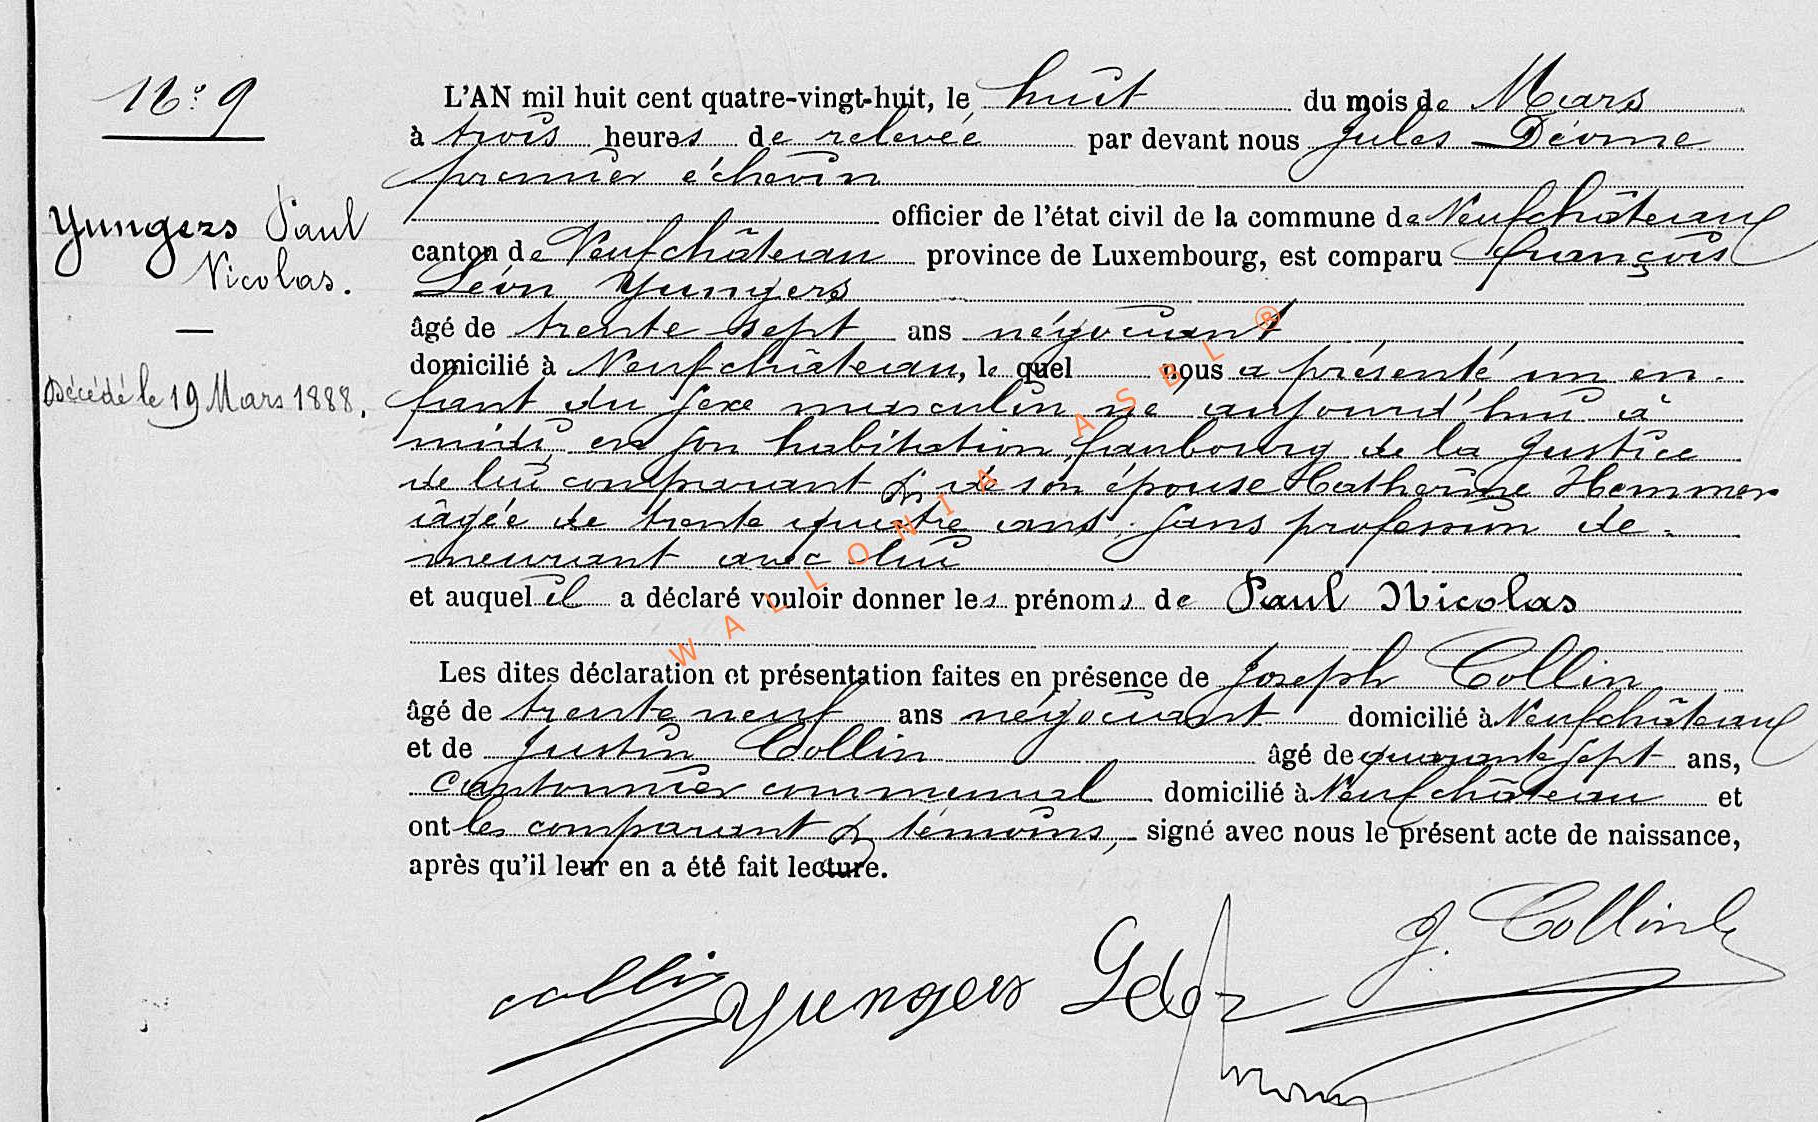 N° 9
Yungers Paul
Nicolas.
Décédé le 19 Mars 1888.
L'AN mil huit cent quatre-vingt-huit, le huit du mois de Mars
à trois heures de relevée par devant nous Jules Déome
premier échevin
officier de l'état civil de la commune de Neufchâteau
canton de Neufchâteau province de Luxembourg, est comparu françois
Léon Yungers
âgé de trente sept ans négociant
domicilié à Neufchâteau, le quel nous a présenté un en-
fant du sexe masculin né aujourd'hui à
midi, en son habitation, faubourg de la Justice
de lui comparant & de son épouse Catherine Hemmer
âgée de trente quatre ans, sans profession de-
meurant avec lui
et auquel il a déclaré vouloir donner les prénoms de Paul Nicolas
Les dites déclaration et présentation faites en présence de Joseph Collin
âgé de trente neuf ans négociant domicilié à Neufchâteau
et de Justin Collin âgé de quarante sept ans,
cantonnier communal domicilié à Neufchâteau et
ont les comparant & témoins, signé avec nous le présent acte de naissance,
après qu'il leur en a été fait lecture.
J. Collin
collin Yungers
WALLONIA ASBL ®